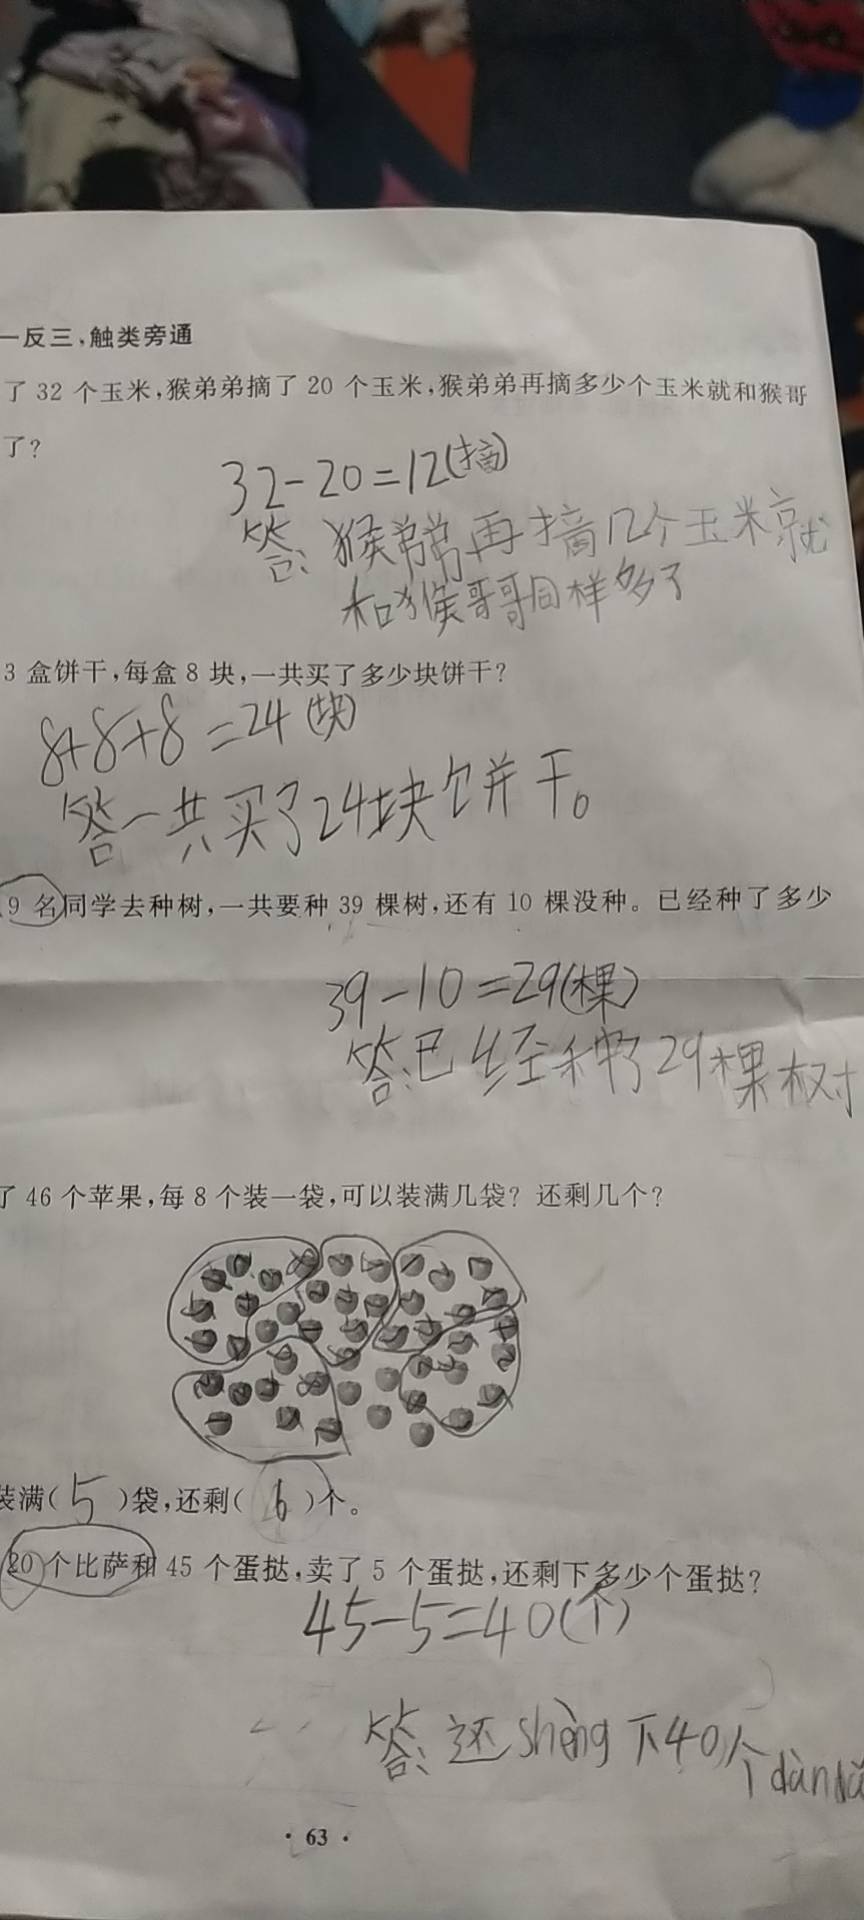 一反三,触类旁通
了 32 个玉米,猴弟弟摘了 20 个玉米,猴弟弟再摘多少个玉米就和猴哥
了?
32-20=12(摘)
答:猴弟弟再摘12个玉米就
和猴哥哥同样多了
3 盒饼干,每盒 8 块,一共买了多少块饼干?
8+8+8=24(块)
答一共买了24块饼干。
9 名同学去种树,一共要种 39 棵树,还有 10 棵没种。已经种了多少
39-10=29(棵)
答:已经种了29棵树
了 46 个苹果,每 8 个装一袋,可以装满几袋? 还剩几个?
装满( 5 )袋,还剩( 6 )个。
20 个比萨和 45 个蛋挞,卖了 5 个蛋挞,还剩下多少个蛋挞?
45-5=40(个)
答:还shèng下40个dàn
· 63 ·